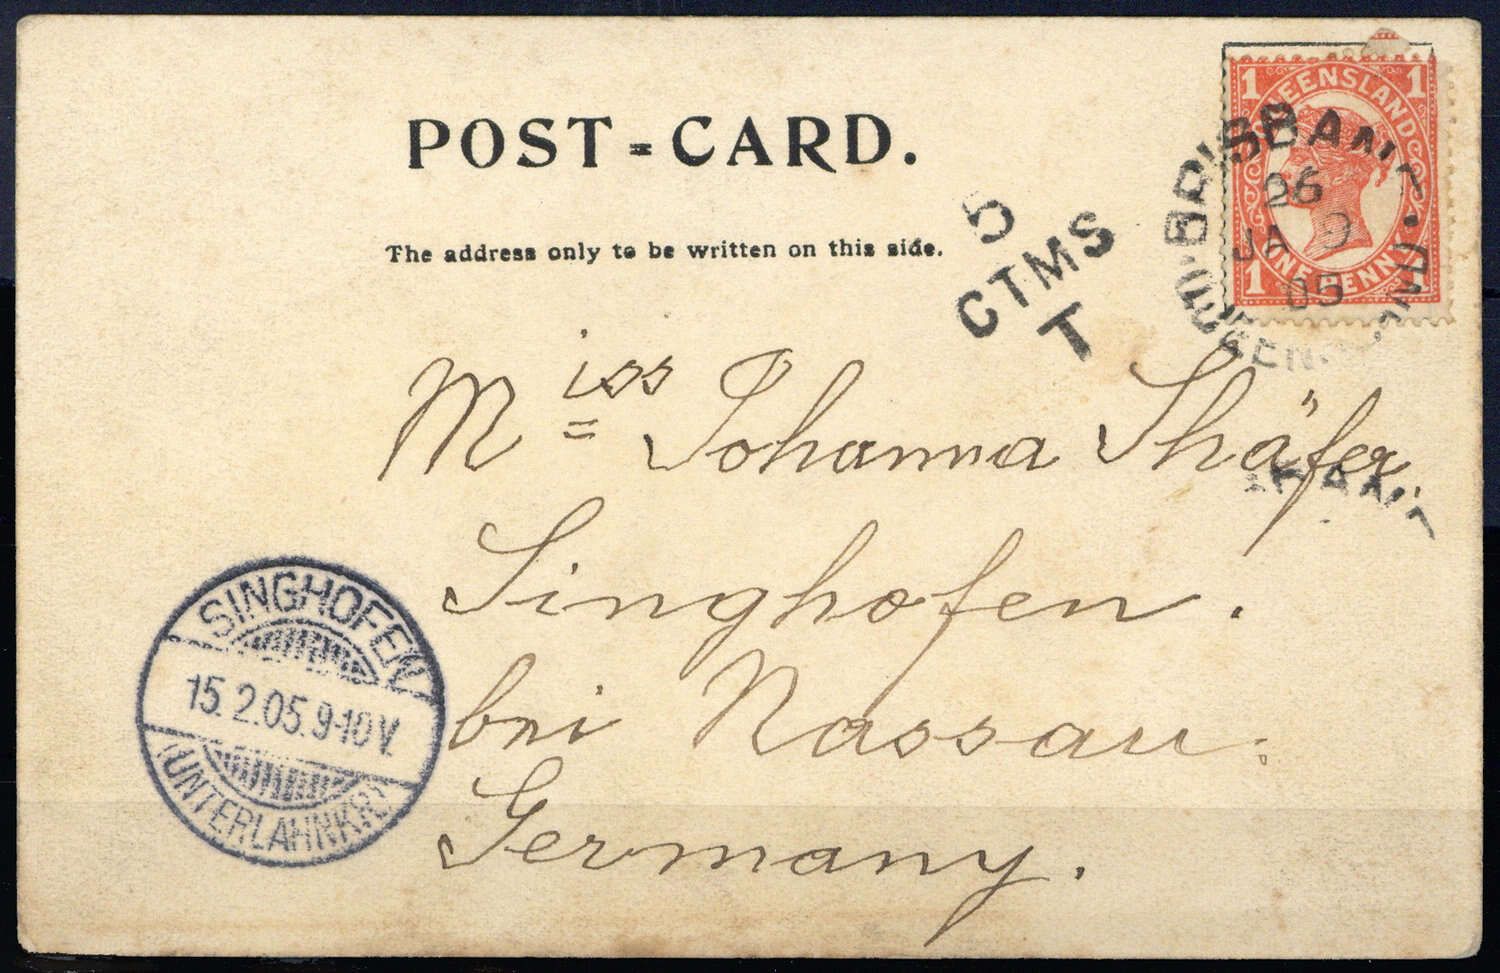 POST-CARD.
The address only to be written on this side.
QUEENSLAND
1 1
ONE PENNY
1 1
BRISBANE
26
JA 9
05
QUEENSLAND
5
CTMS
T
Miss Johanna Shäfer.
Singhofen.
bei Nassau.
Germany.
SINGHOFEN
15.2.05.9-10V.
(UNTERLAHNKR.)